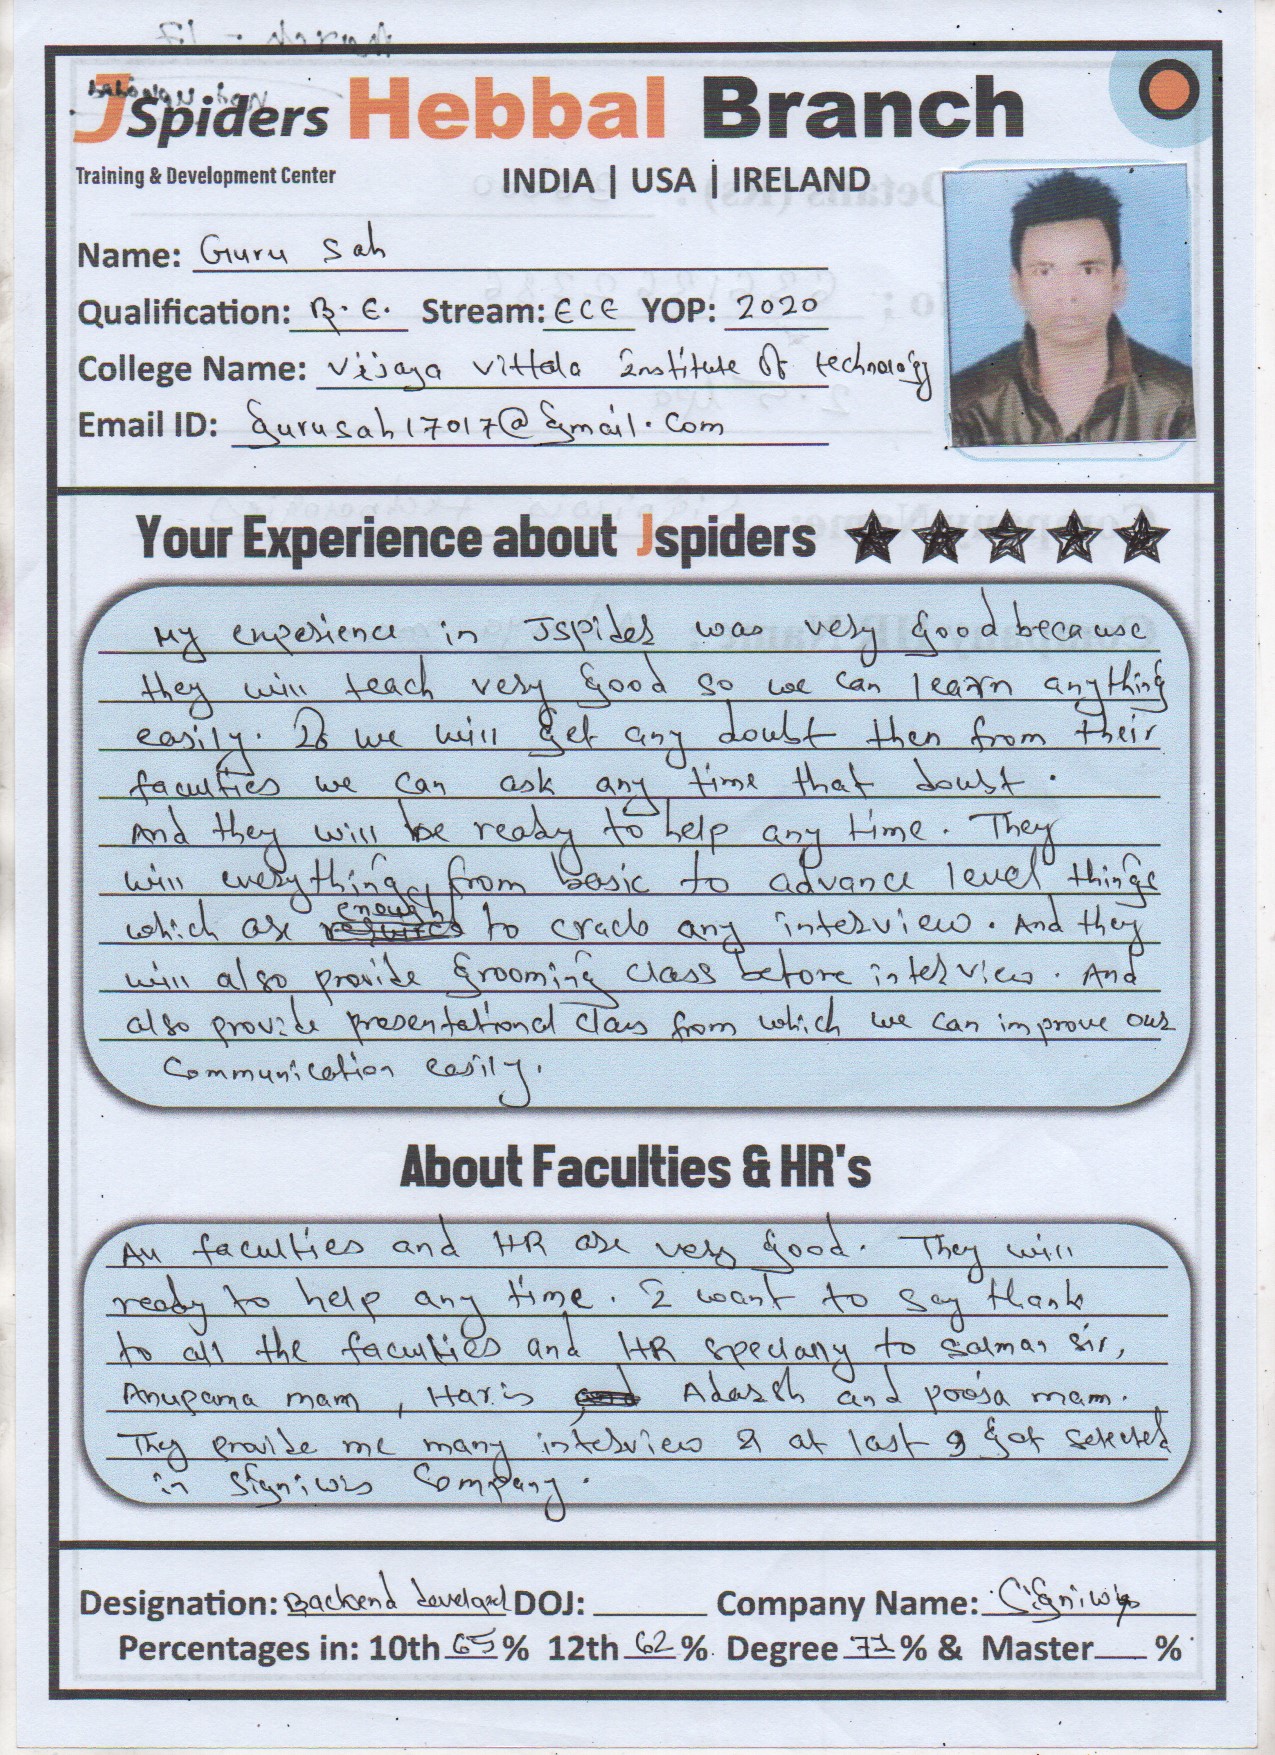 JSpiders Hebbal Branch
Training & Development Center
INDIA | USA | IRELAND
Name: Guru Sah
Qualification: B.E. Stream: ECE YOP: 2020
College Name: Vijaya Vittala Institute Of technology
Email ID: gurusah17017@gmail.com
Your Experience about Jspiders
My experience in JSpider was very good because
they will teach very good so we can learn anything
easily. If we will get any doubt then from their
faculties we can ask any time that doubt.
And they will be ready to help any time. They
will everything, from basic to advance level things
which are enough to crack any interview. And they
will also provide grooming class before interview. And
also provide presentational class from which we can improve our
communication easily.
About Faculties & HR's
All faculties and HR are very good. They will
ready to help any time. I want to say thank
to all the faculties and HR specially to Salman sir,
Anupama mam, Haris Adarsh and pooja mam.
They provide me many interview & at last I got selected
in Signiwis Company.
Designation: Backend developer DOJ: Company Name: Signiwis
Percentages in: 10th 65% 12th 62% Degree 71% & Master %